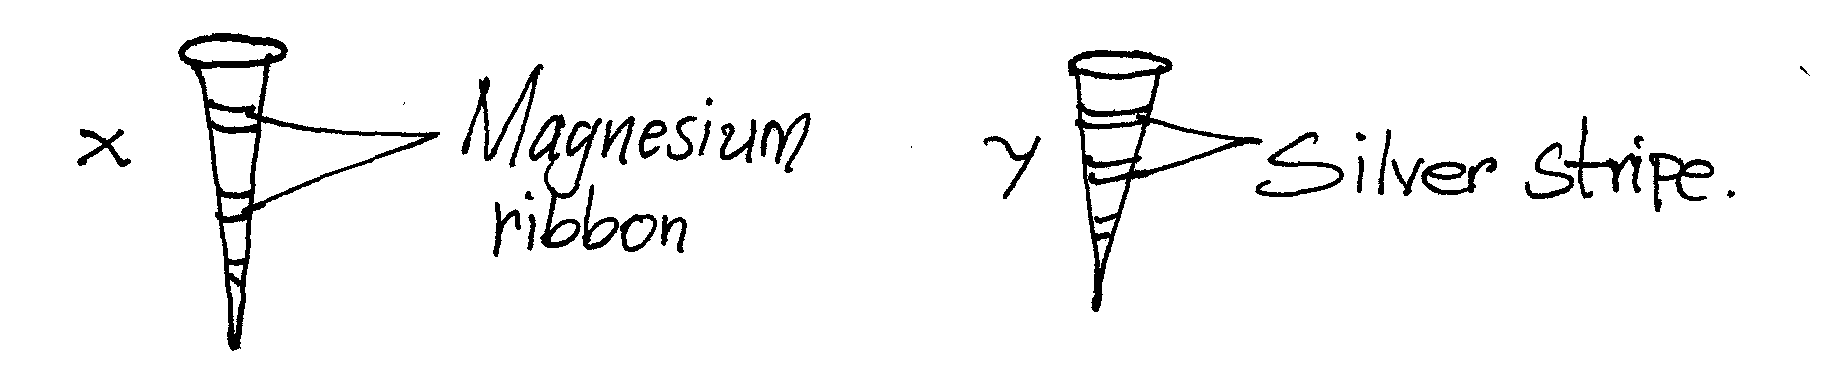 x
Magnesium
ribbon
y
Silver stripe.